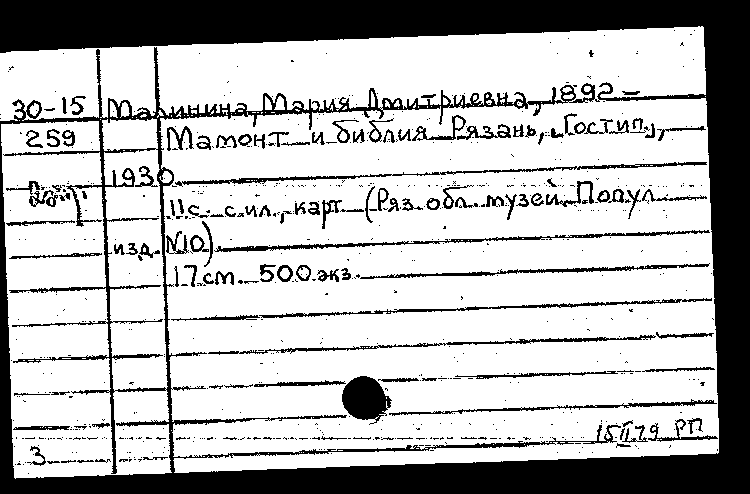 30-15 Малинина, Мария Дмитриевна, 1892 –
259 Мамонт и библия Рязань, „Гостип.",
1930.
11с. с ил., карт (Ряз. обл. музей. Попул
изд. N10).
17 см. 500 экз.
15 II 79 РП
3